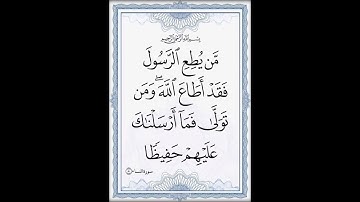 بسم الله الرحمن الرحيم
مَّن يُطِعِ ٱلرَّسُولَ
فَقَدْ أَطَاعَ ٱللَّهَ ۖ وَمَن
تَوَلَّىٰ فَمَآ أَرْسَلْنَٰكَ
عَلَيْهِمْ حَفِيظًا
سورة النساء